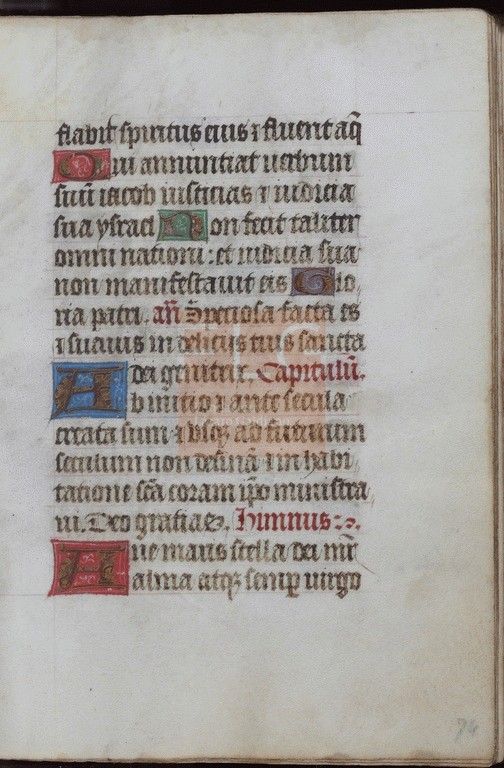 flabit spiritus eius ⁊ fluent aq̄
Qui annuntiat uerbum
suū iacob iusticias ⁊ iudicia
sua ysrael Non fecit taliter
omni nationi: et iudicia sua
non manifestauit eis Glo,
ria patri. añ Speciosa facta es
⁊ suauis in deliciis tuis sancta
dei genitrix. Capitulū.
Ab initio ⁊ ante secula
creata sum ⁊ vsq; ad futurum
seculum non desinā ⁊ in habi,
tatione scā coram ip̄o ministra,
ui. Deo gratias. Himnus:
Aue maris stella dei mr̄
alma atq; semp uirgo
74